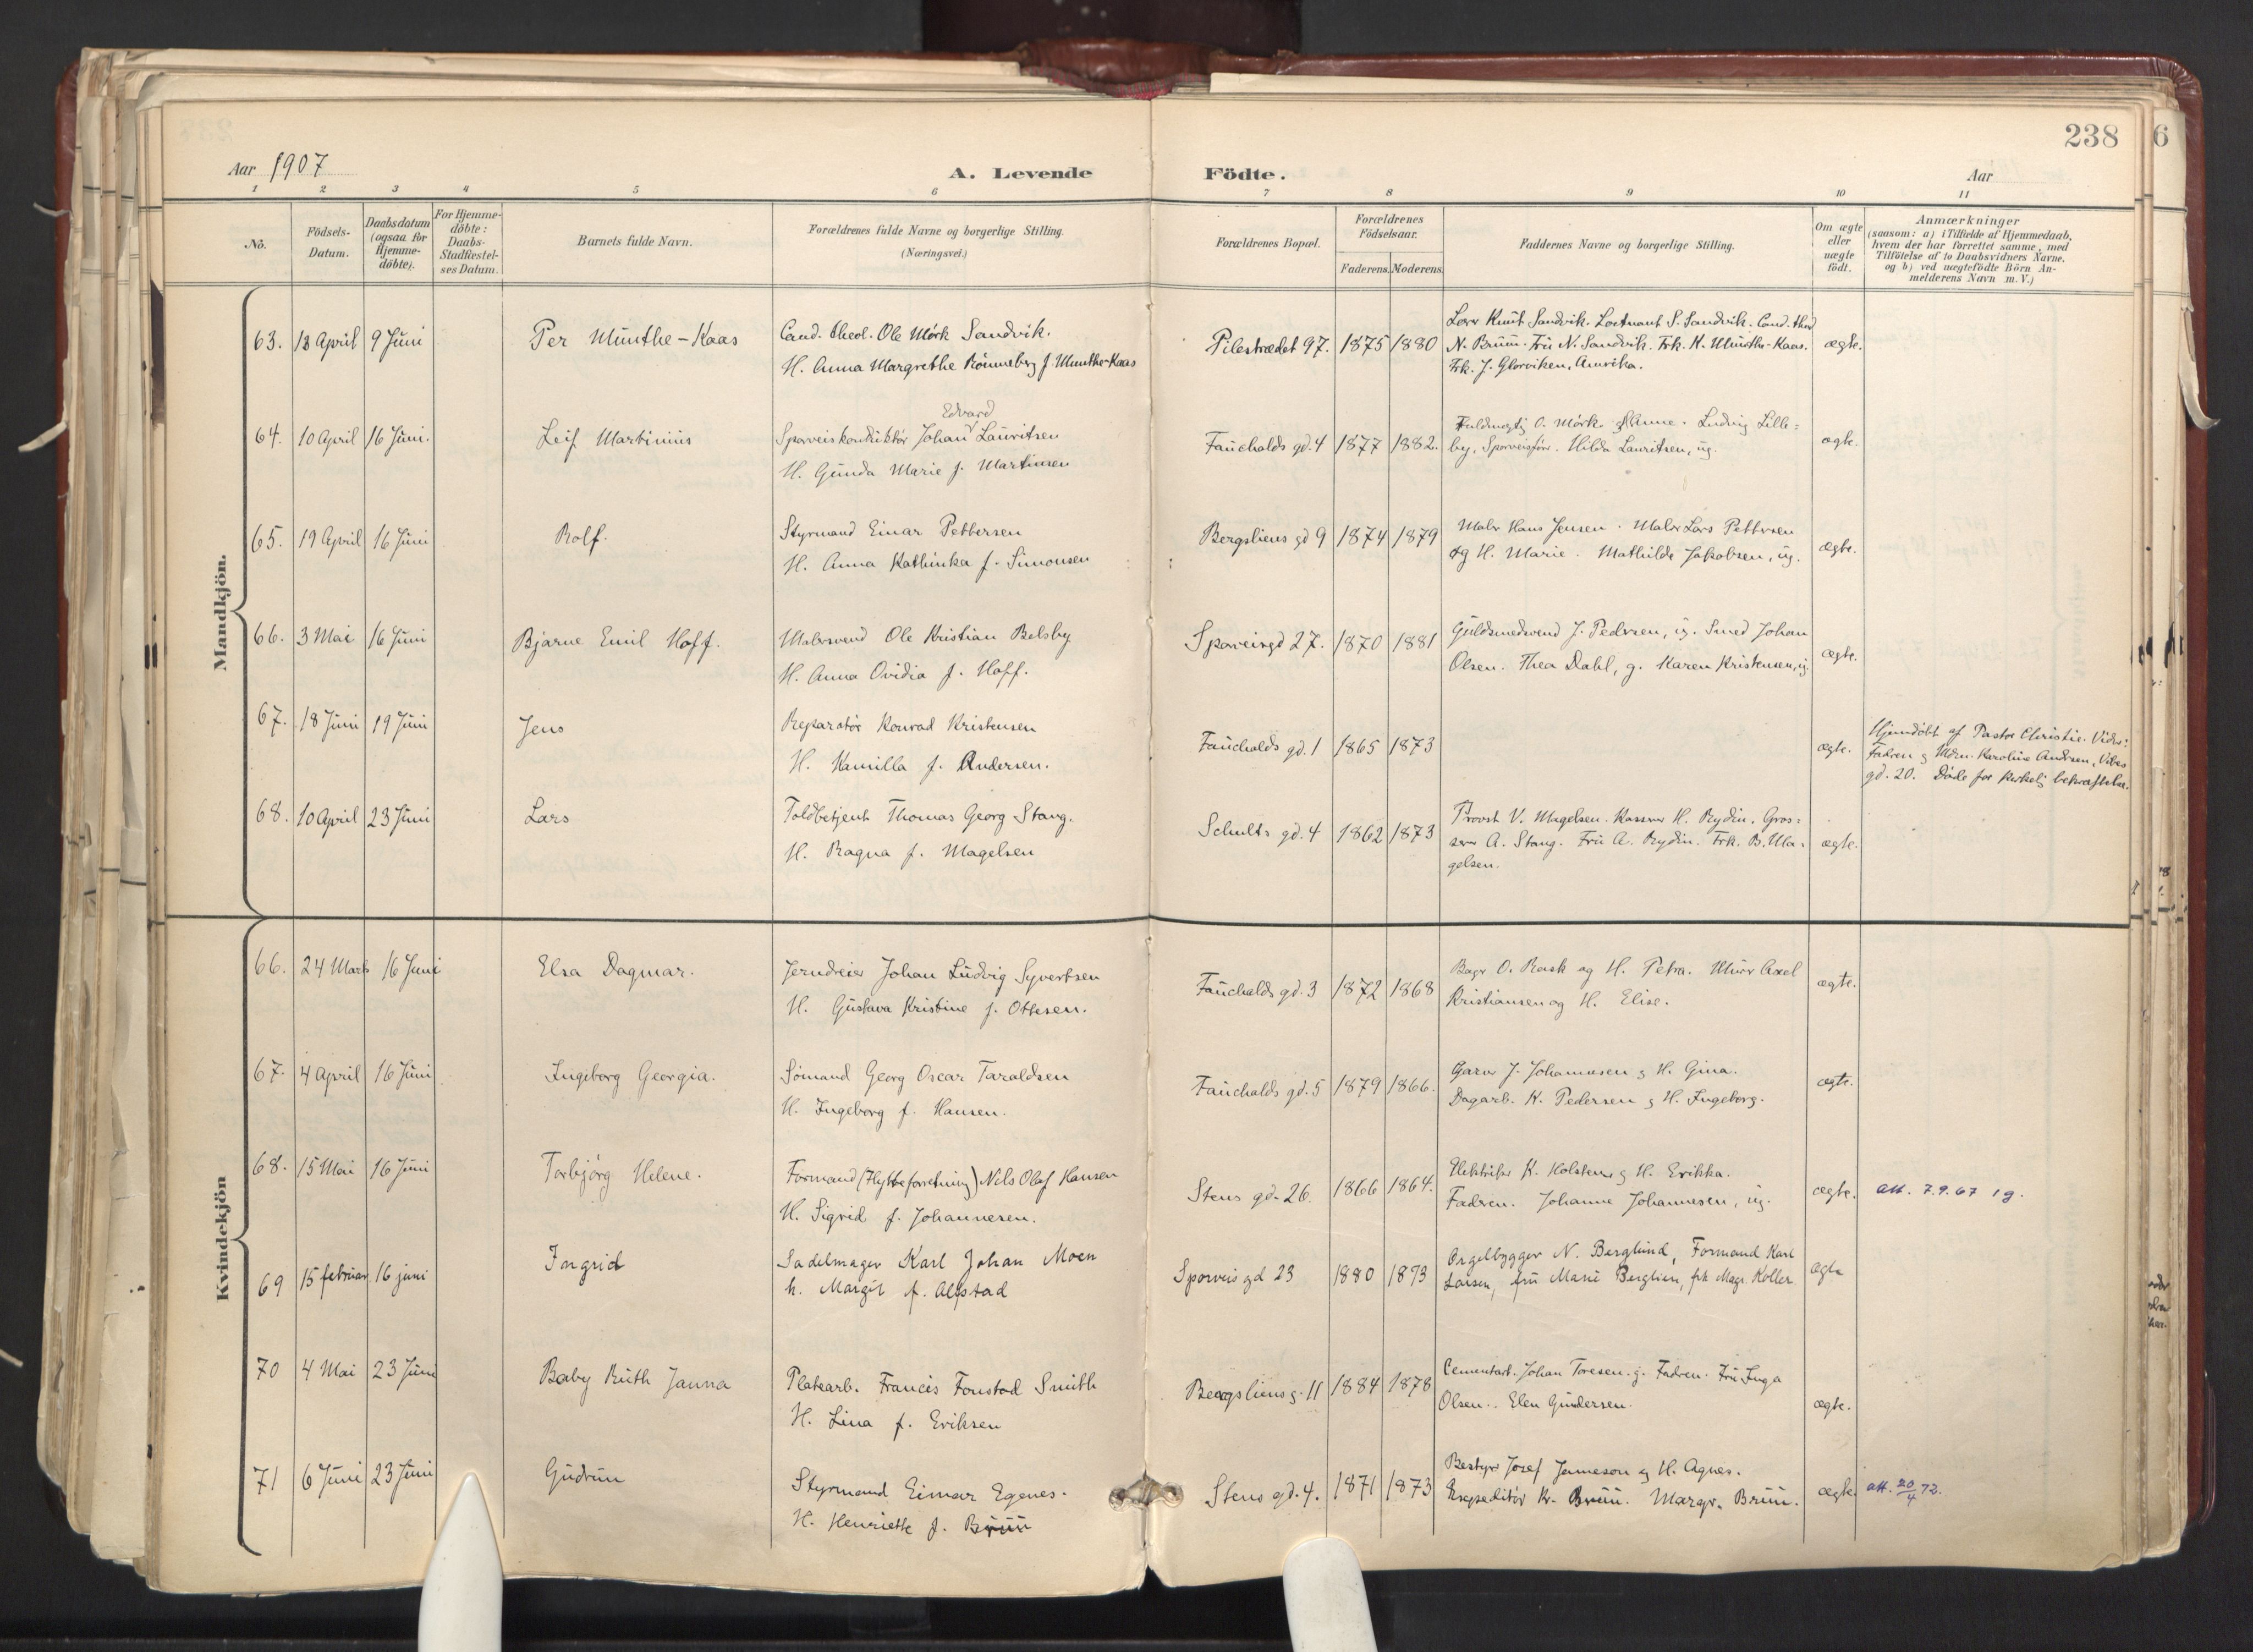 238
6
Aar 1907
A. Levende
Födte.
Aar
1 2 3 4 5 6 7 8 9 10 11
No.
Födsels-Datum.
Daabsdatum (ogsaa for Hjemme-döbte).
For Hjemme-döbte: Daabs-Stadfæstel-ses Datum.
Barnets fulde Navn.
Forældrenes fulde Navne og borgerlige Stilling. (Næringsvei.)
Forældrenes Bopæl.
Forældrenes Födselsaar.
Faderens. Moderens.
Faddernes Navne og borgerlige Stilling.
Om ægte eller uægte födt.
Anmærkninger
(saasom: a) i Tilfælde af Hjemmedaab,
hvem der har forrettet samme, med
Tilföielse af to Daabsvidners Navne.
og b) ved uægtefödte Börn An-
melderens Navn m. V.)
Mandkjön.
63. 13 April 9 Juni Per Munthe-Kaas Cand. theol. Ole Mörk Sandvik.
H. Anna Margrethe Rönneberg f. Munthe-Kaas
Pilestrædet 97. 1875 1880
Lærer Knut Sandvik. Løitnant S. Sandvik. Cand. theol
N. Bruun. Fru N. Sandvik. Frk. K. Munthe-Kaas.
Frk. J. Glorviken, Amerika.
ægte.
64. 10 April 16 Juni. Leif Martinius Sporveiskonduktör Johan Edvard Lauritsen
H. Gunda Marie f. Martinsen
Fauchalds gd. 4 1877 1882.
Fuldmegtig O. Mörk. Anne. Ludvig Lille=
by, Sporveisför. Hilda Lauritsen, ug.
ægte.
65. 19 April 16 Juni Rolf. Styrmand Einar Pettersen
H. Anna Kathinka f. Simonsen
Bergsliens gd 9 1874 1879
Maler Hans Jensen. Maler Lars Pettersen
og H. Marie. Mathilde Jakobsen, ug.
ægte.
66. 3 Mai 16 Juni Bjarne Emil Hoff. Malersvend Ole Kristian Belsby
H. Anna Ovidia f. Hoff.
Sporveisgd 27. 1870 1881
Guldsmedsvend J. Pedersen, ug. Smed Johan
Olsen. Thea Dahl, g. Karen Kristensen, ug.
ægte.
67. 18 Juni 19 Juni Jens Reparatör Konrad Kristensen
H. Kamilla f. Andersen.
Fauchalds gd. 1 1865 1873
ægte.
Hjemdöbt af Pastor Christie. Vidne:
Fadren & Mdm. Karoline Andersen, Vibes
gd. 20. Döde før kirkelig bekræftelse.
68. 10 April 23 Juni Lars Toldbetjent Thomas Georg Stang.
H. Ragna f. Magelsen
Schults gd. 4 1862 1873
Provst V. Magelsen. Kasserer H. Rydin. Gros=
serer A. Stang. Fru A. Rydin. Frk. B. Ma=
gelsen.
ægte.
Kvindekjön
66. 24 Marts 16 Juni Elsa Dagmar. Jerndreier Johan Ludvig Syvertsen
H. Gustava Kristine f. Ottesen.
Fauchalds gd. 3 1872 1868
Bager O. Rask og H. Petra. Murer Axel
Kristiansen og H. Elise.
ægte.
67. 4 April 16 Juni Ingeborg Georgia. Sömand Georg Oscar Taraldsen
H. Ingeborg f. Hansen.
Fauchalds gd. 5 1879 1866.
Garver J. Johannesen & H. Gina.
Dagarb. K. Pedersen & H. Ingeborg.
ægte.
68. 15 Mai 16 Juni Torbjörg Helene. Formand (Flytteforretning) Nils Olaf Hansen
H. Sigrid f. Johannesen.
Stens gd. 26. 1866 1864.
Elektriker K. Holsten & H. Erikka.
Fadren. Johanne Johannesen, ug.
ægte.
att. 7.9.67 1g.
69 15 februar 16 juni Ingrid Sadelmager Karl Johan Moen
h. Margit f. Alfstad
Sporveisgd 23 1880 1873
Orgelbygger N. Berglund, Formand Karl
Larsen, fru Marie Berglien, frk Magr. Koller
ægte
70 4 Mai 23 Juni Baby Ruth Janna Platearb. Francis Fonstad Smith
H. Lina f. Eriksen
Bergsliens g. 11 1884 1878
Cementarb. Johan Toresen. g. Fadren. Fru Inga
Olsen. Elen Gundersen.
ægte.
71 6 Juni 23 Juni Gudrun Styrmand Einar Egenes.
H. Henriette f. Bruun
Stens gd. 4. 1871 1873
Bestyrer Josef Jameson & H. Agnes.
Ekspeditör Kr. Bruun. Margr. Bruun.
ægte.
att. 20/4 72.